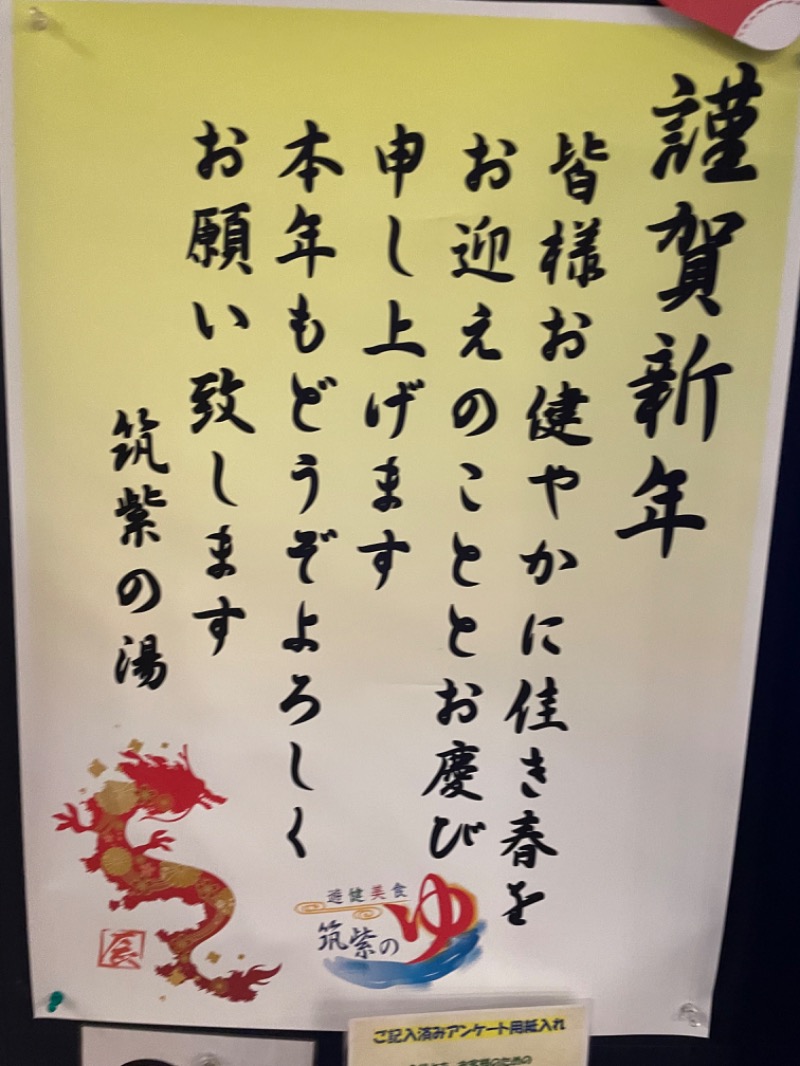 謹賀新年
皆様お健やかに佳き春を
お迎えのこととお慶び
申し上げます
本年もどうぞよろしく
お願い致します
筑紫の湯
辰
遊健美食
筑紫のゆ
ご記入済みアンケート用紙入れ